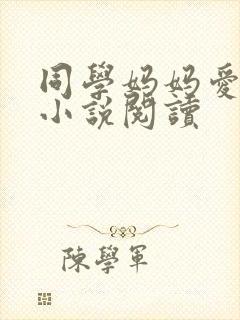 同學妈妈愛
小說閱讀
陳學軍